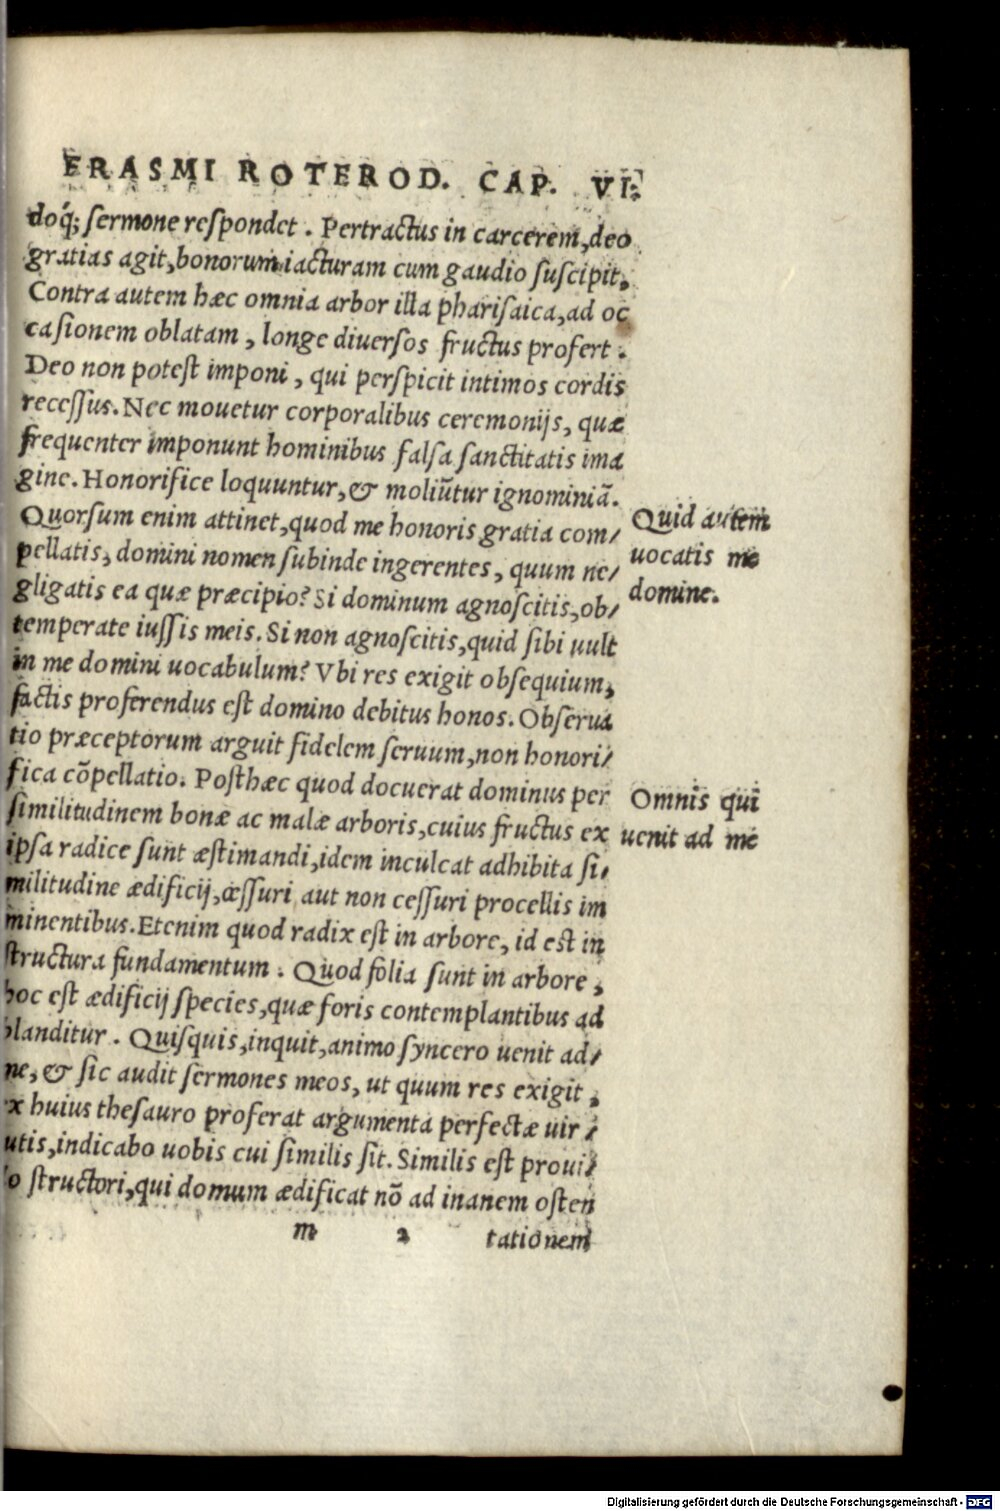 ERASMI ROTEROD. CAP. VI.
doq́; sermone respondet. Pertractus in carcerem, deo
gratias agit, bonorum iacturam cum gaudio suscipit.
Contra autem hæc omnia arbor illa pharisaica, ad oc
casionem oblatam, longe diuersos fructus profert.
Deo non potest imponi, qui perspicit intimos cordis
recessus. Nec mouetur corporalibus ceremonijs, quæ
frequenter imponunt hominibus falsa sanctitatis ima
gine. Honorifice loquuntur, & moliũtur ignominiã.
Quorsum enim attinet, quod me honoris gratia com/
pellatis, domini nomen subinde ingerentes, quum ne/
gligatis ea quæ præcipio? Si dominum agnoscitis, ob/
temperate iussis meis. Si non agnoscitis, quid sibi uult
in me domini uocabulum? Vbi res exigit obsequium,
factis proferendus est domino debitus honos. Obserua
tio præceptorum arguit fidelem seruum, non honori/
fica cõpellatio. Posthæc quod docuerat dominus per
similitudinem bonæ ac malæ arboris, cuius fructus ex
ipsa radice sunt æstimandi, idem inculcat adhibita si/
militudine ædificij, cessuri aut non cessuri procellis im
minentibus. Etenim quod radix est in arbore, id est in
structura fundamentum. Quod folia sunt in arbore,
hoc est ædificij species, quæ foris contemplantibus ad
blanditur. Quisquis, inquit, animo syncero uenit ad/
me, & sic audit sermones meos, ut quum res exigit,
ex huius thesauro proferat argumenta perfectæ uir/
utis, indicabo uobis cui similis sit. Similis est proui/
do structori, qui domum ædificat nõ ad inanem osten
m 2 tationem
Quid autem
uocatis me
domine.
Omnis qui
uenit ad me
Digitalisierung gefördert durch die Deutsche Forschungsgemeinschaft - DFG